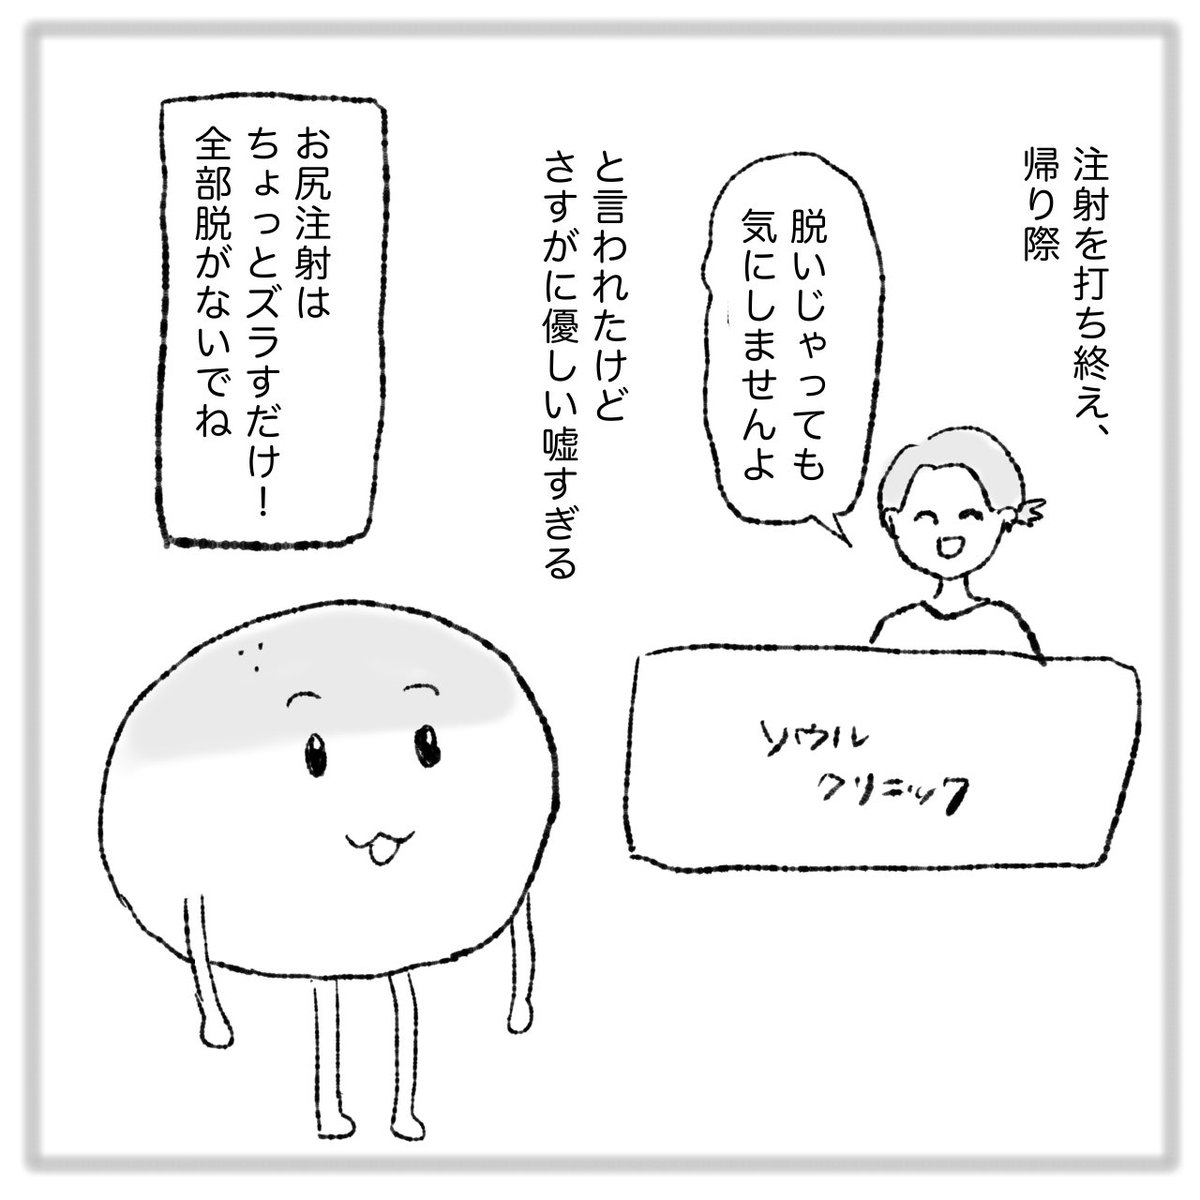 注射を打ち終え、
帰り際
脱いじゃっても
気にしませんよ
と言われたけど
さすがに優しい嘘すぎる
お尻注射は
ちょっとズラすだけ！
全部脱がないでね
ソウル
クリニック